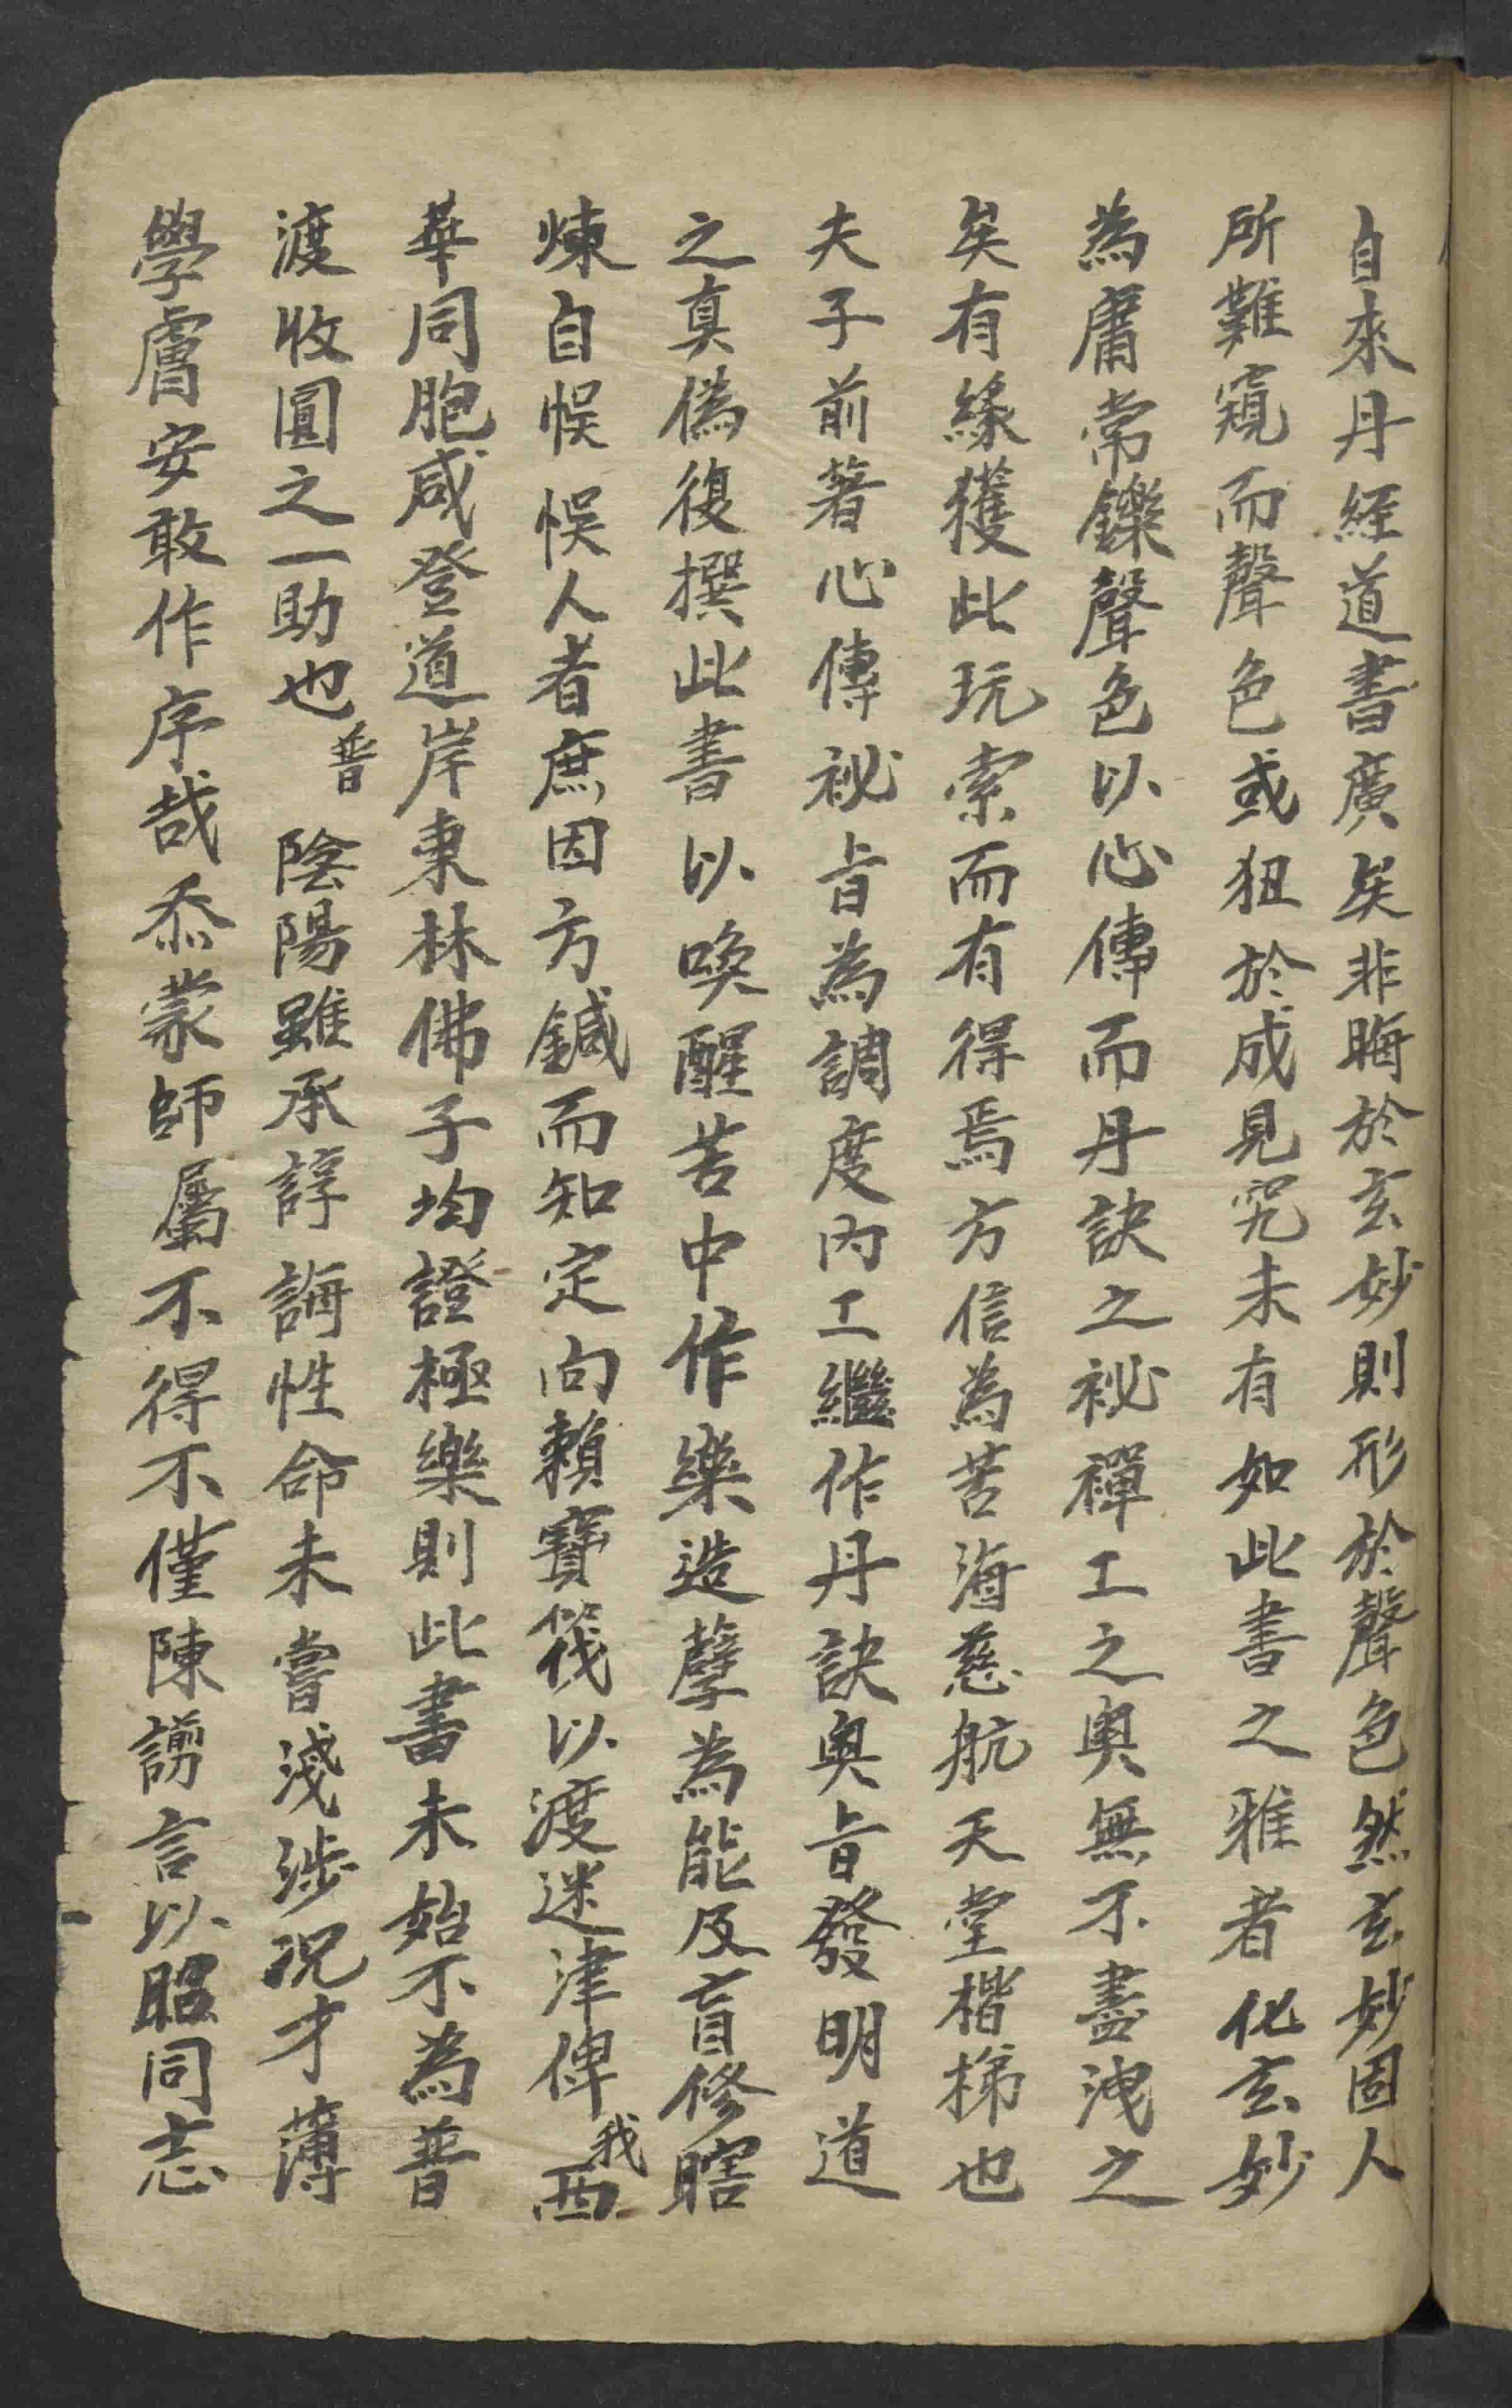 自來丹經道書廣矣非晦於玄妙則形於聲色然玄妙固人
所難窺而聲色或狃於成見究未有如此書之雅者化玄妙
為庸常鑠聲色以心傳而丹訣之祕禪工之奧無不盡洩之
矣有緣獲此玩索而有得焉方信為苦海慈航天堂楷梯也
夫子前著心傳祕旨為調度內工繼作丹訣奥旨發明道
之真偽復撰此書以喚醒苦中作樂造孽為能及盲修瞎
煉自悮悮人者庶因方鍼而知定向賴寶筏以渡迷津俾我西
華同胞咸登道岸東林佛子均證極樂則此書未始不為普
渡收圓之一助也普陰陽雖承諄誨性命未嘗淺涉況才薄
學膚安敢作序哉忝蒙師屬不得不僅陳謭言以昭同志